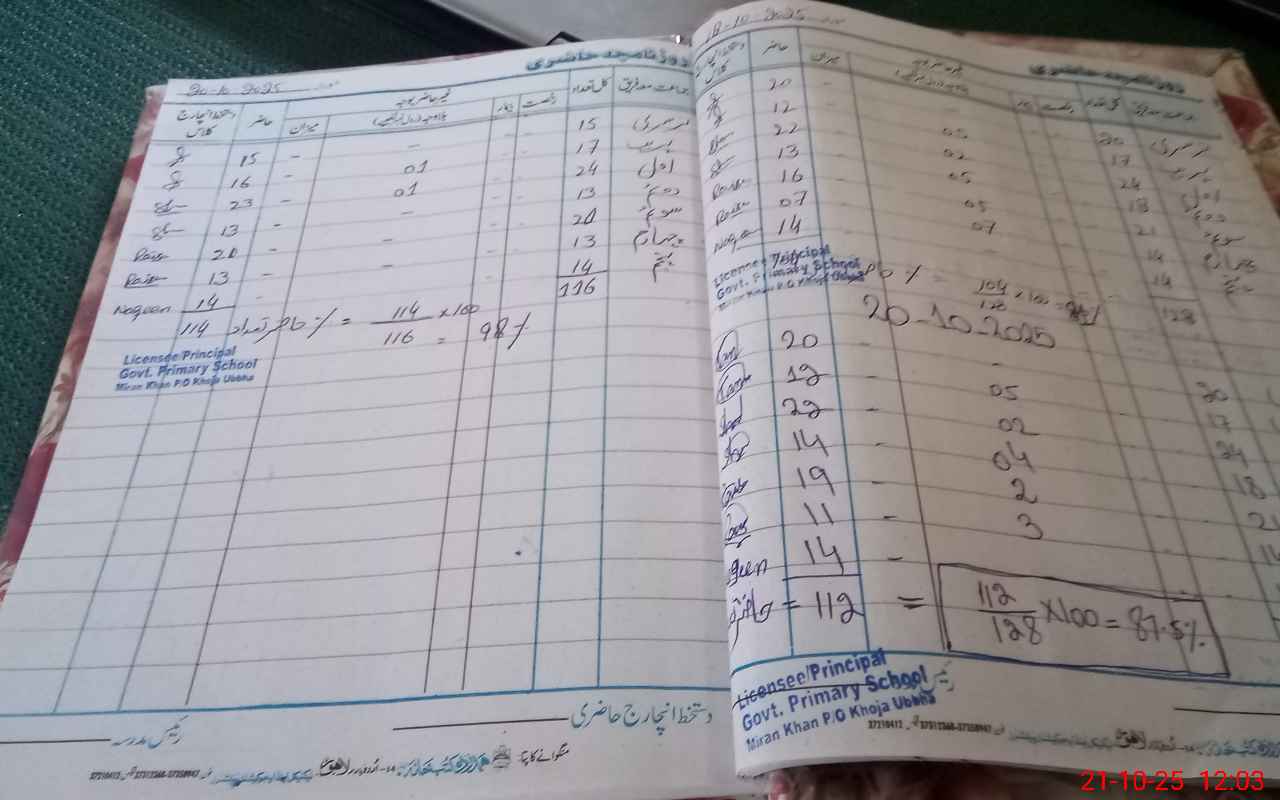 روزنامچہ حاضری
20-10-2025
جماعت معہ فریق کل تعداد رخصت بیمار غیر حاضر بوجہ میزان حاضر دستخط انچارج کلاس
نرسری 15 - - - - 15
17 - - 01 - 16
اول 24 - - 01 - 23
دوم 13 - - - - 13
سوم 20 - - - - 20 Rais
چہارم 13 - - - - 13 Rais
پنجم 14 - - - - 14 Nageen
116 114
حاضر تعداد % = 114/116 × 100 = 98%
Licensee/Principal
Govt. Primary School
Miran Khan P/O Khoja Ubbha
دستخط انچارج حاضری
رئیس مدرسہ
18-10-2025
روزنامچہ حاضری
نرسری 20 20
17 05 12
اول 24 02 22
دوم 18 05 13
سوم 21 05 16
چہارم 14 07 07
پنجم 14 14 Nageen
128 104
% = 104/128 × 100 = 81%
Licensee/Principal
Govt. Primary School
Miran Khan P/O Khoja Ubbha
20-10-2025
20 - - 20
17 05 - 12
24 02 - 22
18 04 - 14
21 2 - 19
14 3 - 11
- 14
= 112 = 112/128 × 100 = 87.5%
Licensee/Principal
Govt. Primary School
Miran Khan P/O Khoja Ubbha
21-10-25 12:03